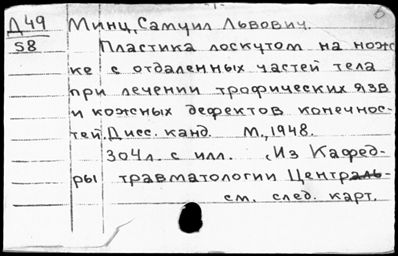 Д49 Минц, Самуил Львович.
58 Пластика лоскутом на нож-
ке с отдаленных частей тела
при лечении трофических язв
и кожных дефектов конечнос-
тей. Дисс. канд. М., 1948.
304л. с илл. (Из Кафед-
ры травматологии Централь-
см. след. карт.